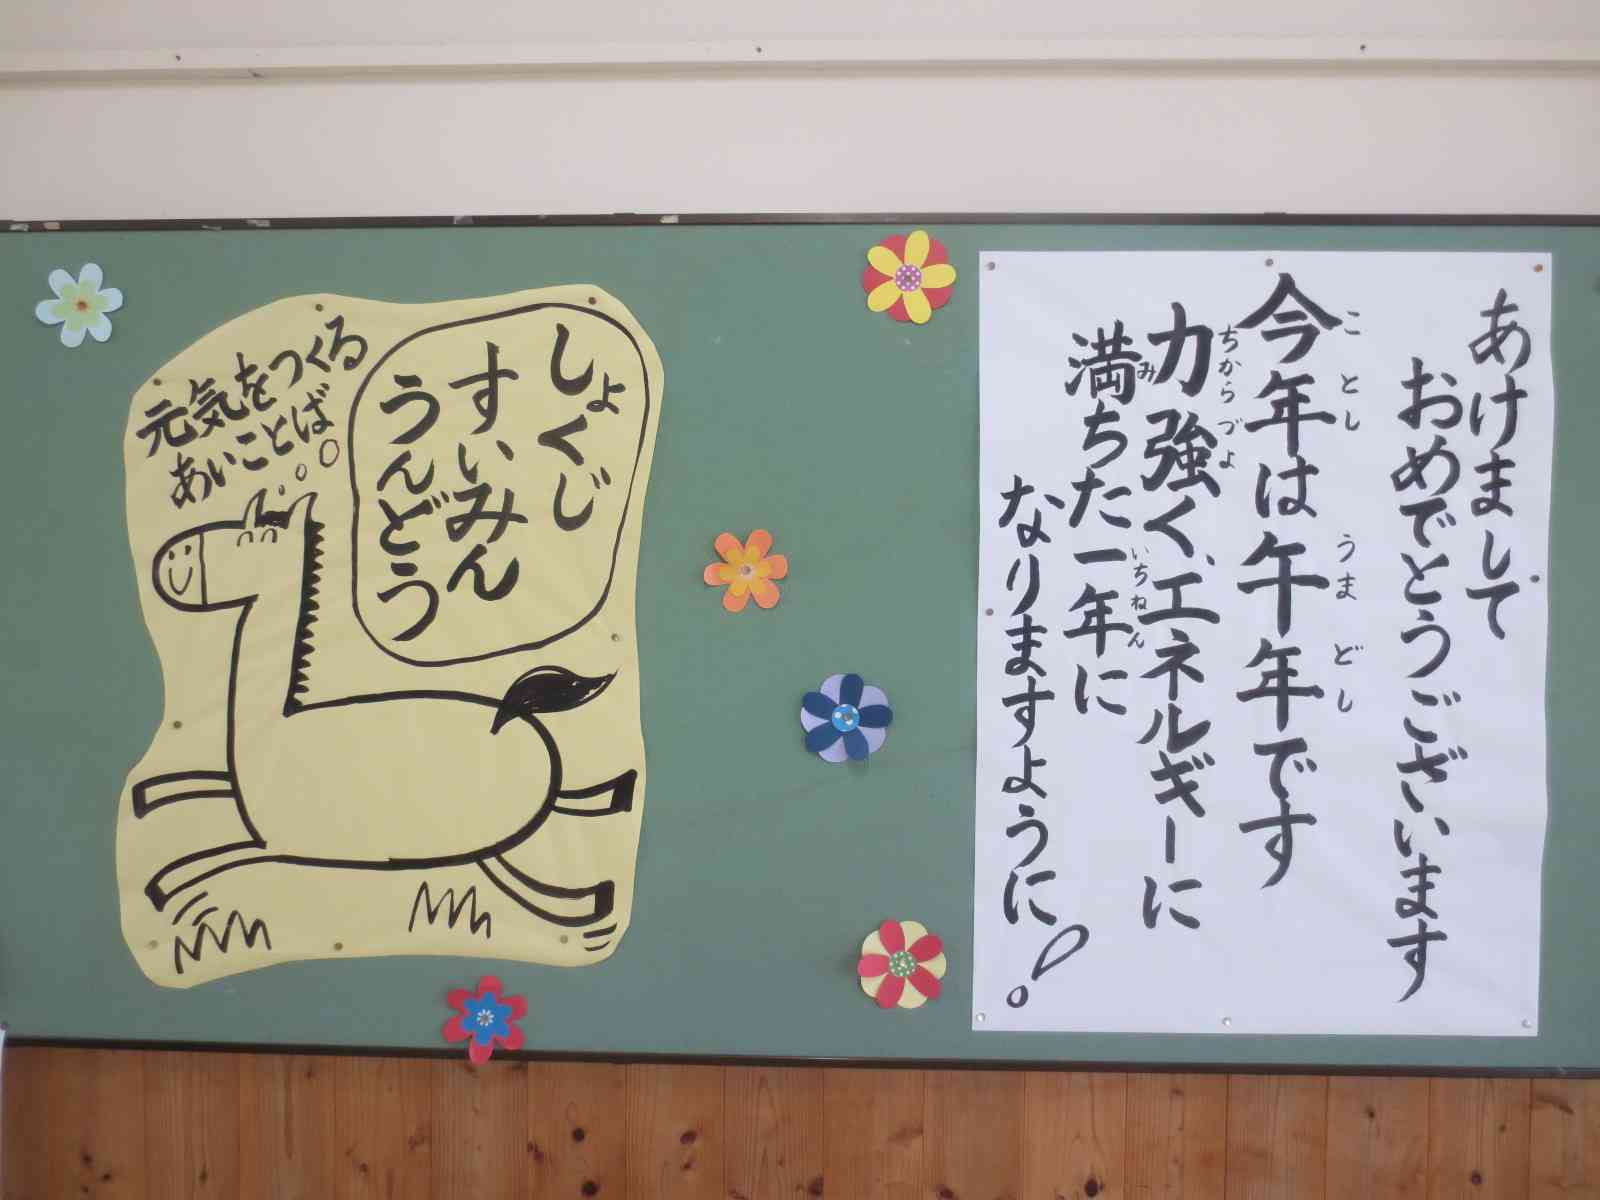 あけまして
おめでとうございます
今年は午年です
ことし
うまどし
力強く、エネルギーに
ちからづよ
満ちた一年に
み
いちねん
なりますように!
元気をつくる
あいことば
しょくじ
すいみん
うんどう